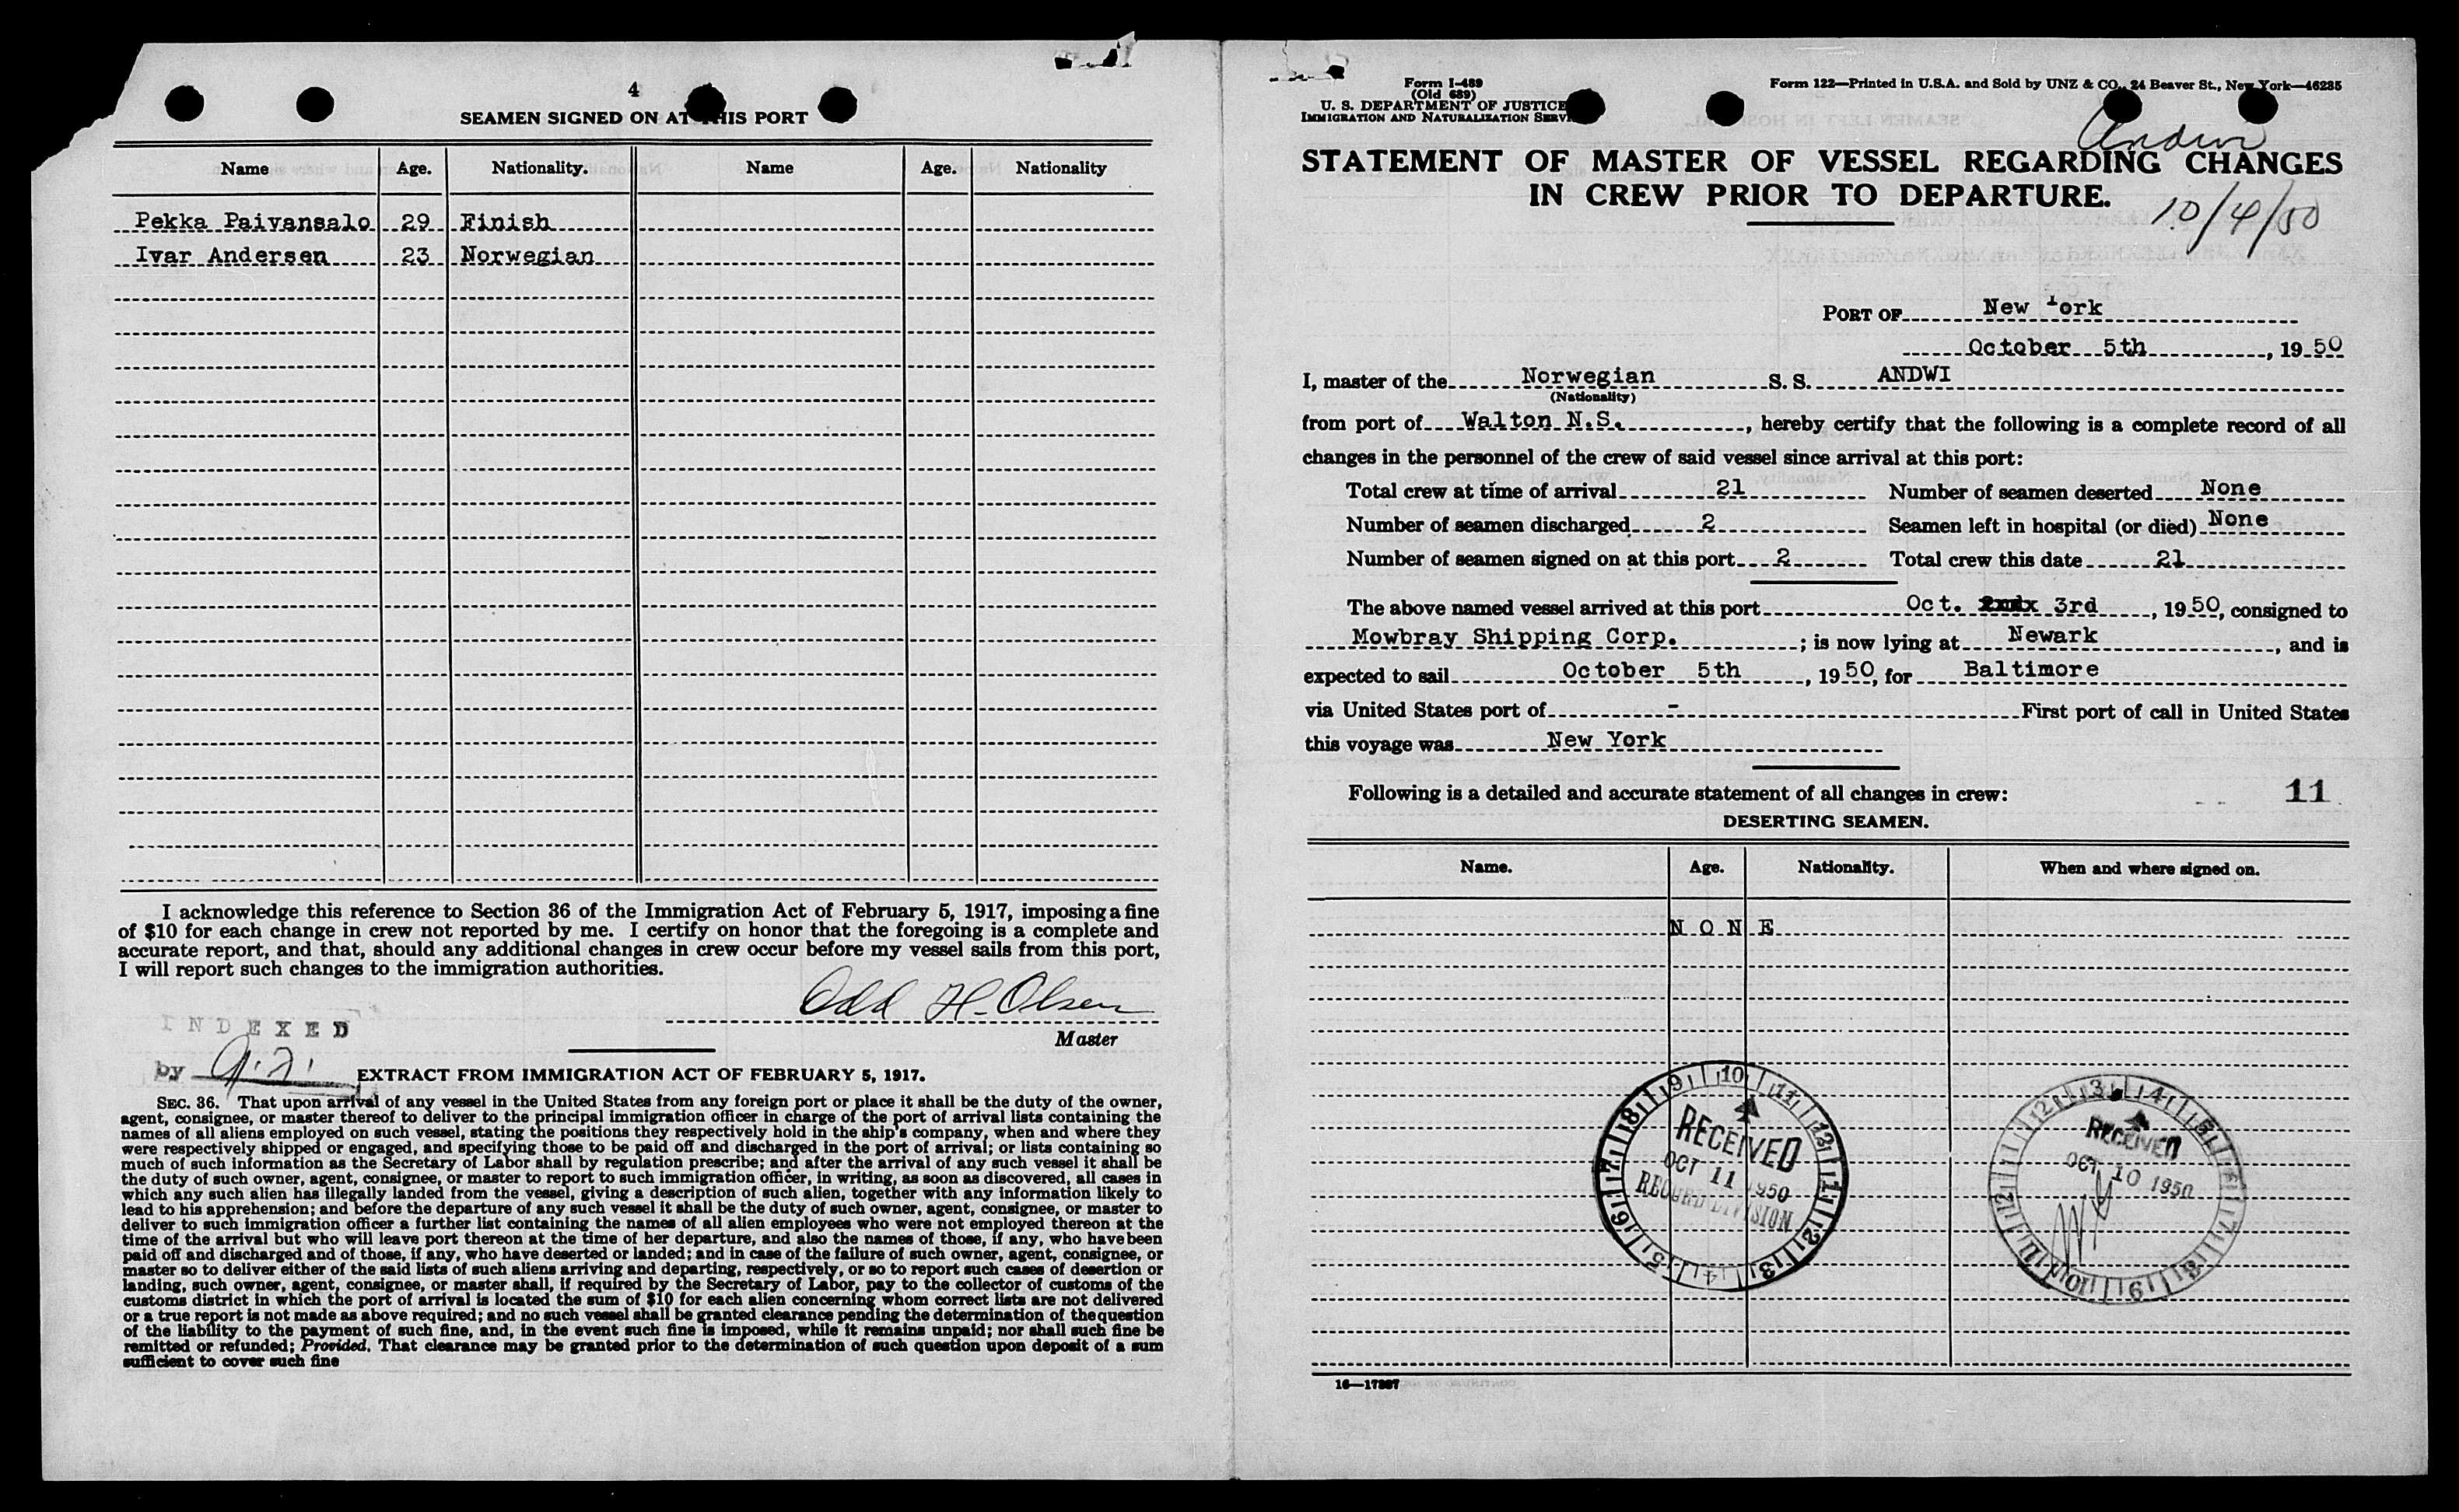 4
SEAMEN SIGNED ON AT THIS PORT
Name Age. Nationality. Name Age. Nationality
Pekka Paivansalo 29 Finish
Ivar Andersen 23 Norwegian
I acknowledge this reference to Section 36 of the Immigration Act of February 5, 1917, imposing a fine
of $10 for each change in crew not reported by me. I certify on honor that the foregoing is a complete and
accurate report, and that, should any additional changes in crew occur before my vessel sails from this port,
I will report such changes to the immigration authorities.
Odd H. Olsen
Master
INDEXED
by
EXTRACT FROM IMMIGRATION ACT OF FEBRUARY 5, 1917.
SEC. 36. That upon arrival of any vessel in the United States from any foreign port or place it shall be the duty of the owner,
agent, consignee, or master thereof to deliver to the principal immigration officer in charge of the port of arrival lists containing the
names of all aliens employed on such vessel, stating the positions they respectively hold in the ship's company, when and where they
were respectively shipped or engaged, and specifying those to be paid off and discharged in the port of arrival; or lists containing so
much of such information as the Secretary of Labor shall by regulation prescribe; and after the arrival of any such vessel it shall be
the duty of such owner, agent, consignee, or master to report to such immigration officer, in writing, as soon as discovered, all cases in
which any such alien has illegally landed from the vessel, giving a description of such alien, together with any information likely to
lead to his apprehension; and before the departure of any such vessel it shall be the duty of such owner, agent, consignee, or master to
deliver to such immigration officer a further list containing the names of all alien employees who were not employed thereon at the
time of the arrival but who will leave port thereon at the time of her departure, and also the names of those, if any, who have been
paid off and discharged and of those, if any, who have deserted or landed; and in case of the failure of such owner, agent, consignee, or
master so to deliver either of the said lists of such aliens arriving and departing, respectively, or so to report such cases of desertion or
landing, such owner, agent, consignee, or master shall, if required by the Secretary of Labor, pay to the collector of customs of the
customs district in which the port of arrival is located the sum of $10 for each alien concerning whom correct lists are not delivered
or a true report is not made as above required; and no such vessel shall be granted clearance pending the determination of the question
of the liability to the payment of such fine, and, in the event such fine is imposed, while it remains unpaid; nor shall such fine be
remitted or refunded; Provided, That clearance may be granted prior to the determination of such question upon deposit of a sum
sufficient to cover such fine
Form I-489
(Old 689)
U. S. DEPARTMENT OF JUSTICE
IMMIGRATION AND NATURALIZATION SERVI
Form 122—Printed in U.S.A. and Sold by UNZ & CO., 24 Beaver St., New York—46285
Andwi
STATEMENT OF MASTER OF VESSEL REGARDING CHANGES
IN CREW PRIOR TO DEPARTURE.
10/4/50
PORT OF New York
October 5th, 1950
I, master of the Norwegian S. S. ANDWI
(Nationality)
from port of Walton N.S., hereby certify that the following is a complete record of all
changes in the personnel of the crew of said vessel since arrival at this port:
Total crew at time of arrival 21 Number of seamen deserted None
Number of seamen discharged 2 Seamen left in hospital (or died) None
Number of seamen signed on at this port 2 Total crew this date 21
The above named vessel arrived at this port Oct. 3rd, 1950, consigned to
Mowbray Shipping Corp.; is now lying at Newark, and is
expected to sail October 5th, 1950, for Baltimore
via United States port of - First port of call in United States
this voyage was New York
Following is a detailed and accurate statement of all changes in crew: 11
DESERTING SEAMEN.
Name. Age. Nationality. When and where signed on.
NONE
RECEIVED
OCT 11 1950
RECORD DIVISION
RECEIVED
OCT 10 1950
16—17887